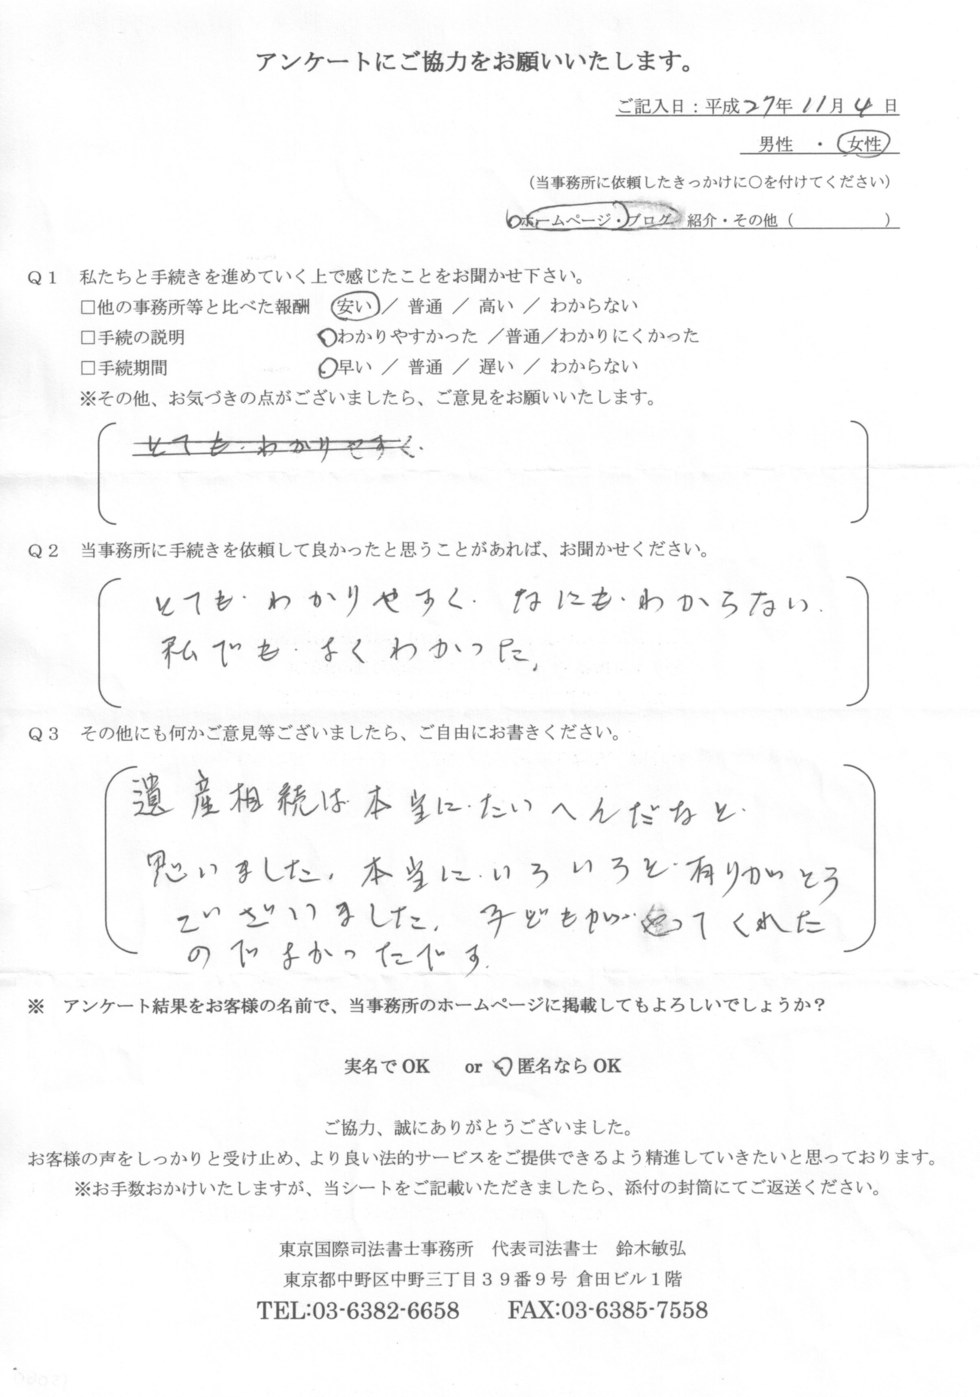 アンケートにご協力をお願いいたします。
ご記入日：平成27年11月4日
男性 ・ 女性
（当事務所に依頼したきっかけに○を付けてください）
ホームページ・ブログ 紹介・その他（ ）
Q1 私たちと手続きを進めていく上で感じたことをお聞かせ下さい。
□他の事務所等と比べた報酬 安い／ 普通 ／ 高い ／ わからない
□手続の説明 わかりやすかった ／普通／わかりにくかった
□手続期間 早い ／ 普通 ／ 遅い ／ わからない
※その他、お気づきの点がございましたら、ご意見をお願いいたします。
とても・わかりやすく・
Q2 当事務所に手続きを依頼して良かったと思うことがあれば、お聞かせください。
とても・わかりやすく・なにも・わからない.
私でも・よくわかった、
Q3 その他にも何かご意見等ございましたら、ご自由にお書きください。
遺産相続は本当に・たいへんだなと・
思いました. 本当に・いろいろと・有りがとう
ございました. 子どもが・やってくれた
のでよかったです.
※ アンケート結果をお客様の名前で、当事務所のホームページに掲載してもよろしいでしょうか？
実名でOK or 匿名ならOK
ご協力、誠にありがとうございました。
お客様の声をしっかりと受け止め、より良い法的サービスをご提供できるよう精進していきたいと思っております。
※お手数おかけいたしますが、当シートをご記載いただきましたら、添付の封筒にてご返送ください。
東京国際司法書士事務所 代表司法書士 鈴木敏弘
東京都中野区中野三丁目３９番９号 倉田ビル１階
TEL:03-6382-6658 FAX:03-6385-7558